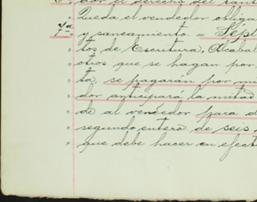 por el derecho del tant
Queda el vendedor obliga
7ª y saneamiento. = Sépt
tos de Escritura, Alcabal
otros que se hagan por
ta, se pagarán por m
dor anticipará la mitad
de al vendedor para d
segundo entero de seis
que debe hacer en efect